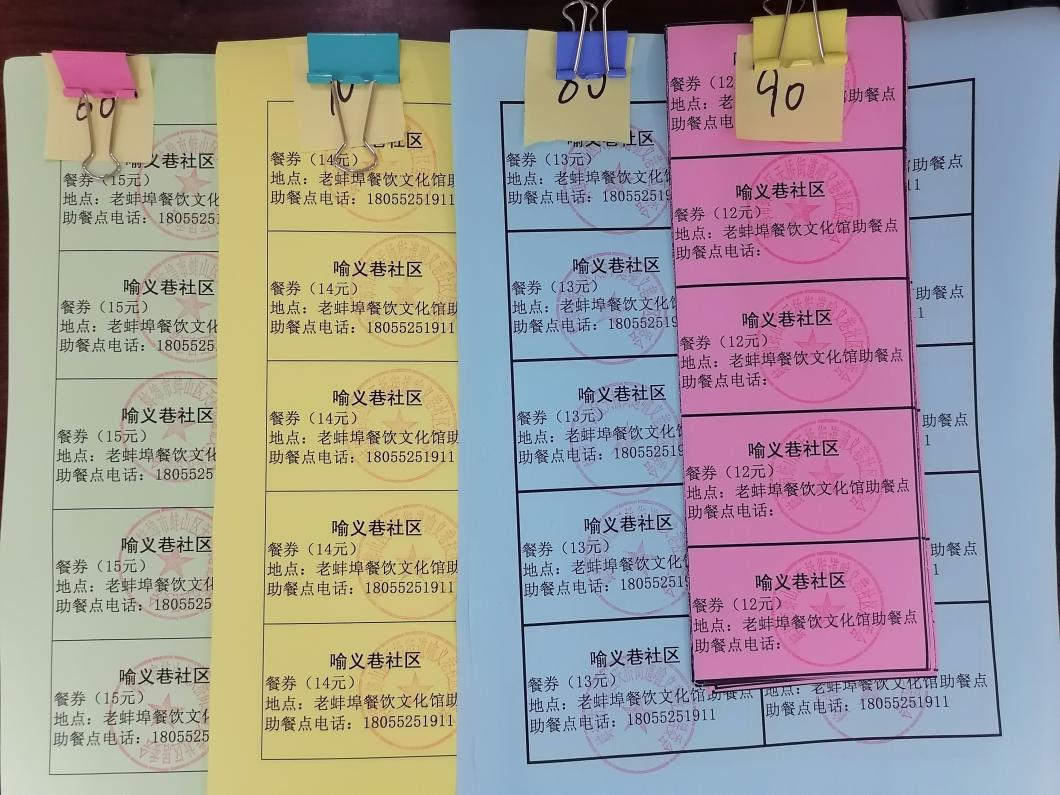 60
喻义巷社区
餐券（15元）
地点：老蚌埠餐饮文化
助餐点电话：18055251
喻义巷社区
餐券（15元）
地点：老蚌埠餐饮文化
助餐点电话：1805525
喻义巷社区
餐券（15元）
地点：老蚌埠餐饮文化
助餐点电话：1805525
喻义巷社区
餐券（15元）
地点：老蚌埠餐饮文化
助餐点电话：1805525
喻义巷社区
餐券（15元）
地点：老蚌埠餐饮文化
助餐点电话：1805525
社区
餐券（14元）
地点：老蚌埠餐饮文化馆助
助餐点电话：18055251911
喻义巷社区
餐券（14元）
地点：老蚌埠餐饮文化馆助
助餐点电话：18055251911
喻义巷社区
餐券（14元）
地点：老蚌埠餐饮文化馆助
助餐点电话：18055251911
喻义巷社区
餐券（14元）
地点：老蚌埠餐饮文化馆助
助餐点电话：18055251911
喻义巷社区
餐券（14元）
地点：老蚌埠餐饮文化馆助
助餐点电话：18055251911
80
社区
餐券（13元）
地点：老蚌埠餐饮文化馆
助餐点电话：180552519
喻义巷社区
餐券（13元）
地点：老蚌埠餐饮文化馆
助餐点电话：180552519
喻义巷社区
餐券（13元）
地点：老蚌埠餐饮文化馆
助餐点电话：180552519
喻义巷社区
餐券（13元）
地点：老蚌埠餐饮文化馆
助餐点电话：180552519
喻义巷社区
餐券（13元）
地点：老蚌埠餐饮文化馆助餐点
助餐点电话：18055251911
90
餐券（12
地点：老 馆助餐点
助餐点电
喻义巷社区
餐券（12元）
地点：老蚌埠餐饮文化馆助餐点
助餐点电话：
喻义巷社区
餐券（12元）
地点：老蚌埠餐饮文化馆助餐点
助餐点电话：
喻义巷社区
餐券（12元）
地点：老蚌埠餐饮文化馆助餐点
助餐点电话：
喻义巷社区
餐券（12元）
地点：老蚌埠餐饮文化馆助餐点
助餐点电话：
馆助餐点
911
助餐点
1
助餐点
1
助餐点
1
地点：老蚌埠餐饮文化馆助餐点
助餐点电话：18055251911